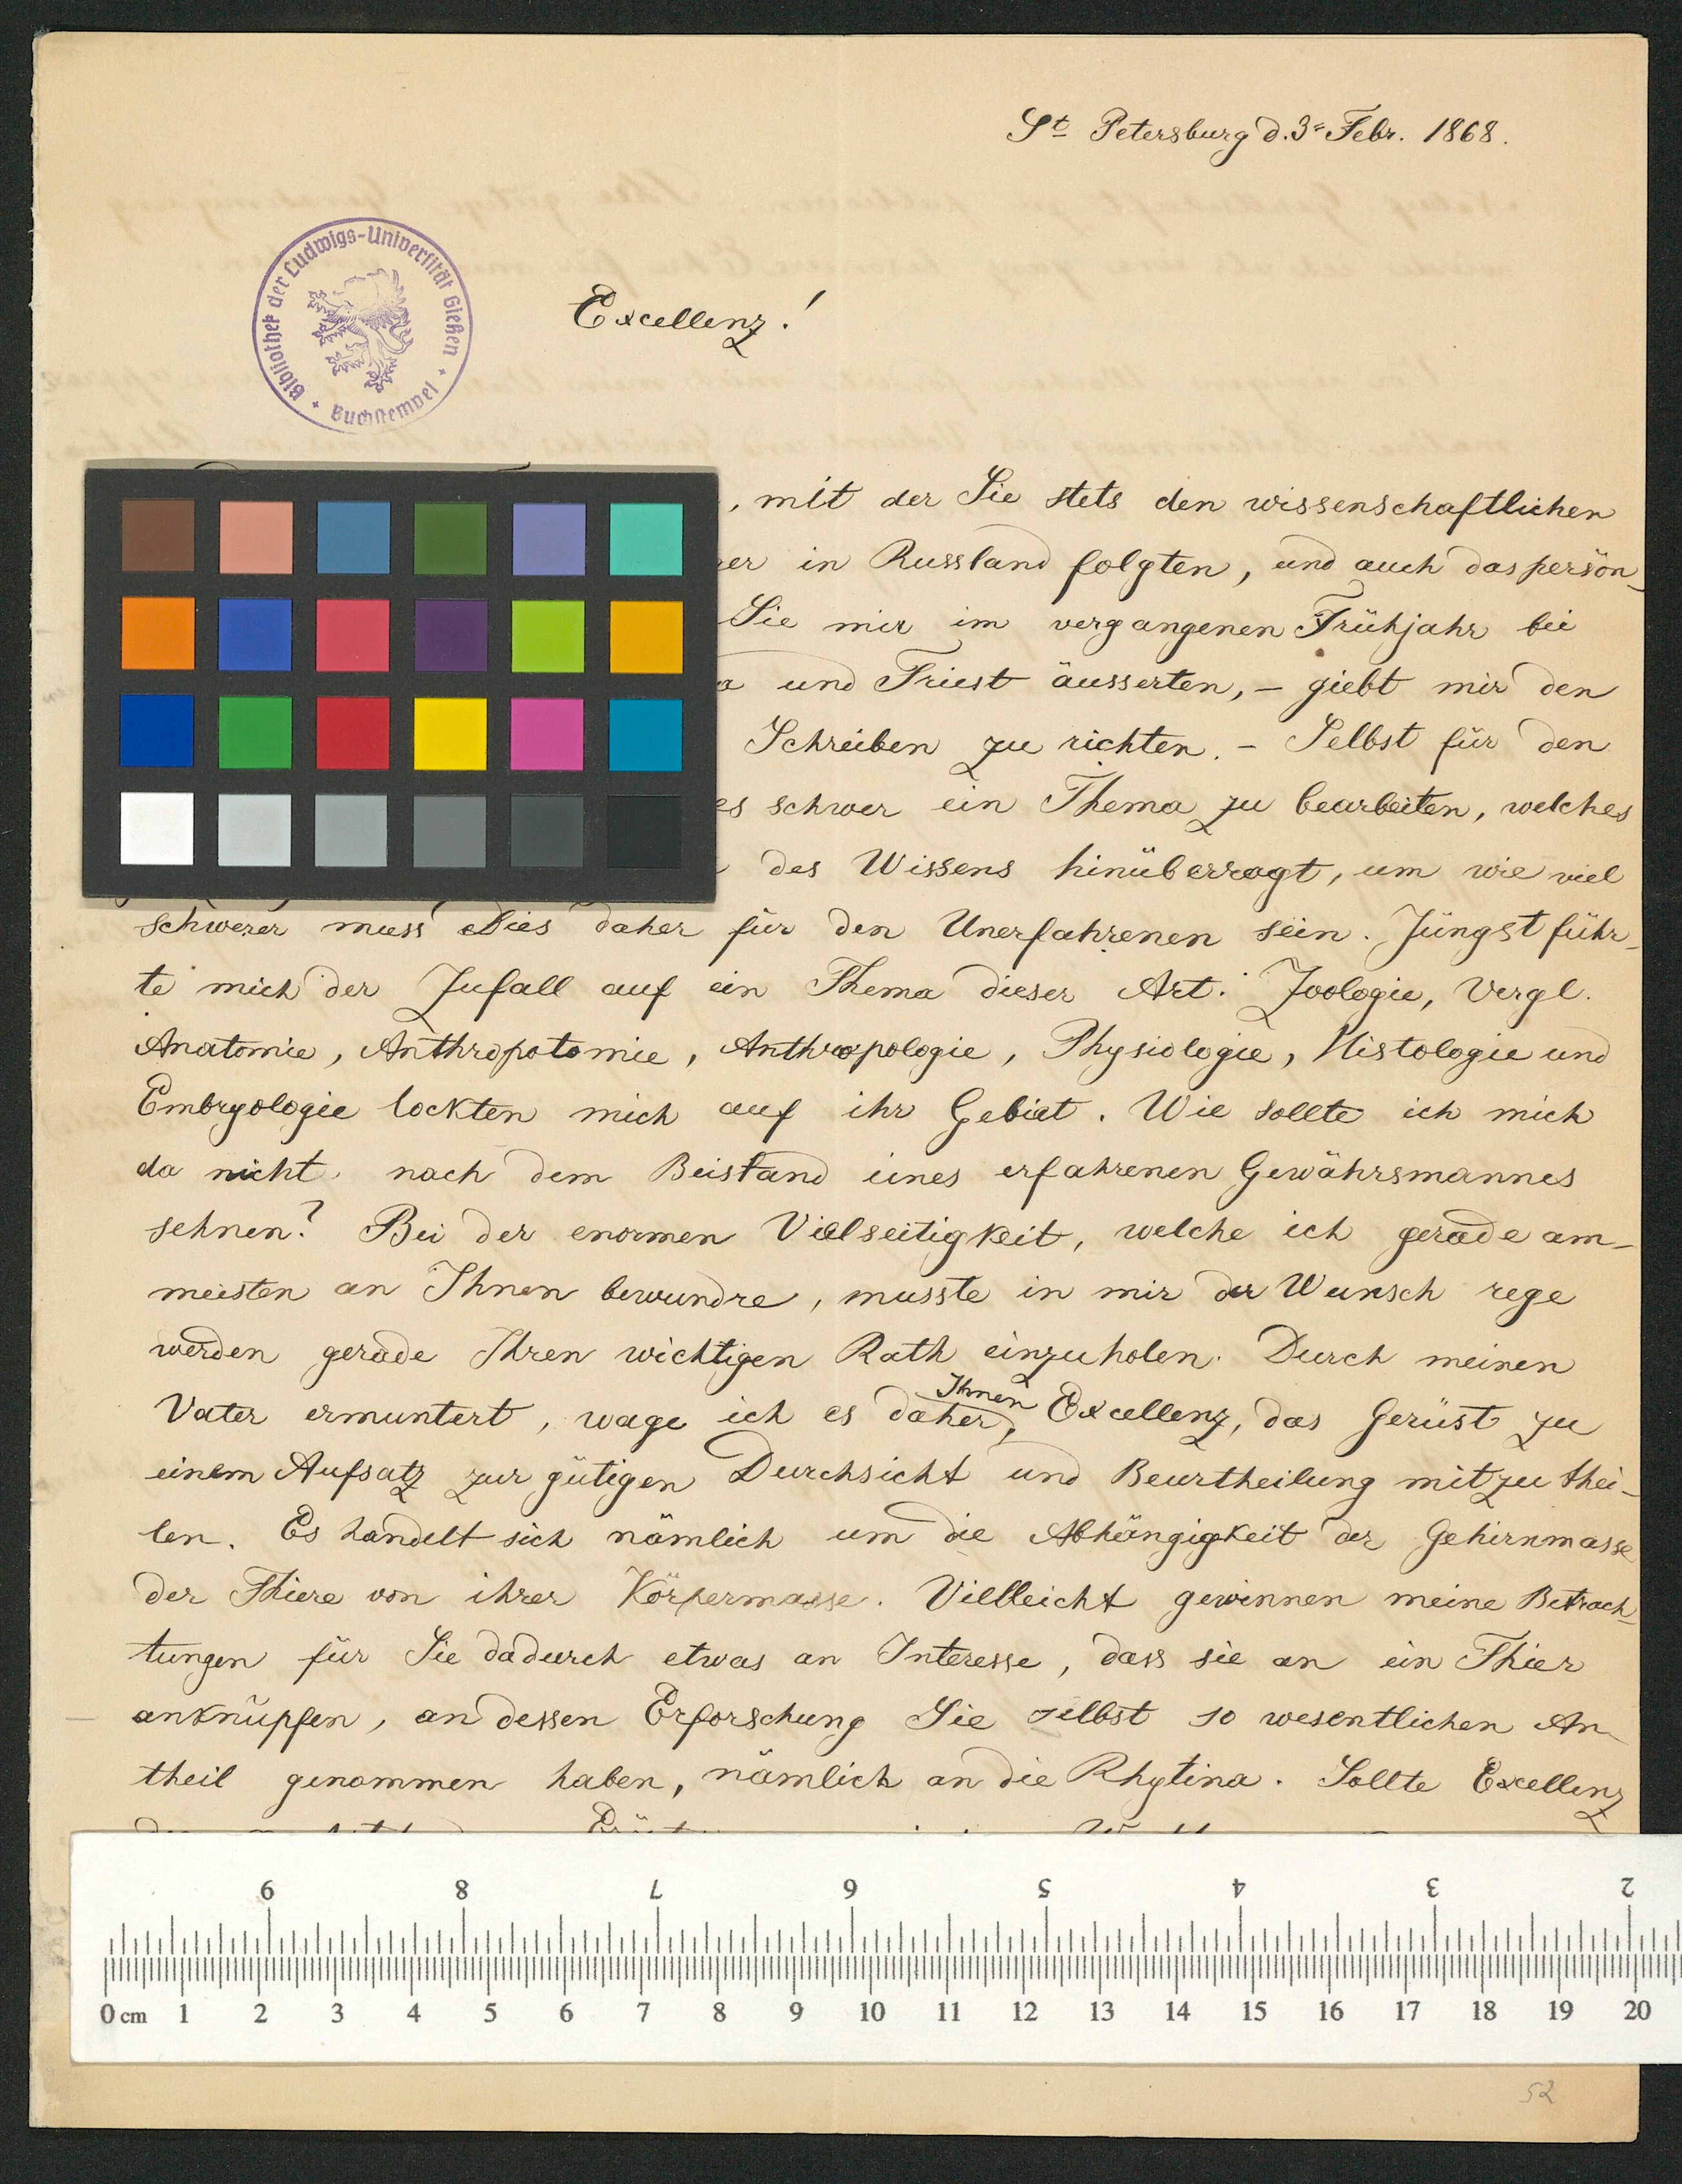 St Petersburg d. 3r Febr. 1868.
Bibliothek der Ludwigs-Universität Gießen
Buchstempel
Excellenz!
, mit der Sie stets den wissenschaftlichen
in Russland folgten, und auch das persön-
Sie mir im vergangenen Frühjahr bei
und Triest äusserten, – giebt mir den
Schreiben zu richten. – Selbst für den
es schwer ein Thema zu bearbeiten, welches
des Wissens hinüberragt, um wie viel
schwerer muss Dies daher für den Unerfahrenen sein. Jüngst führ-
te mich der Zufall auf ein Thema dieser Art. Zoologie, Vergl.
Anatomie, Anthropotomie, Anthropologie, Physiologie, Histologie und
Embryologie lockten mich auf ihr Gebiet. Wie sollte ich mich
da nicht nach dem Beistand eines erfahrenen Gewährsmannes
sehnen? Bei der enormen Vielseitigkeit, welche ich gerade am-
meisten an Ihnen bewundre, musste in mir der Wunsch rege
werden gerade Ihren wichtigen Rath einzuholen. Durch meinen
Vater ermuntert, wage ich es daher, Ihnen Excellenz, das Gerüst zu
einem Aufsatz zur gütigen Durchsicht und Beurtheilung mitzuthei-
len. Es handelt sich nämlich um die Abhängigkeit der Gehirnmasse
der Thiere von ihrer Körpermasse. Vielleicht gewinnen meine Betrach-
tungen für Sie dadurch etwas an Interesse, dass sie an ein Thier
anknüpfen, an dessen Erforschung Sie selbst so wesentlichen An-
theil genommen haben, nämlich an die Rhytina. Sollte Excellenz
9 8 7 6 5 4 3 2
0 cm 1 2 3 4 5 6 7 8 9 10 11 12 13 14 15 16 17 18 19 20
52